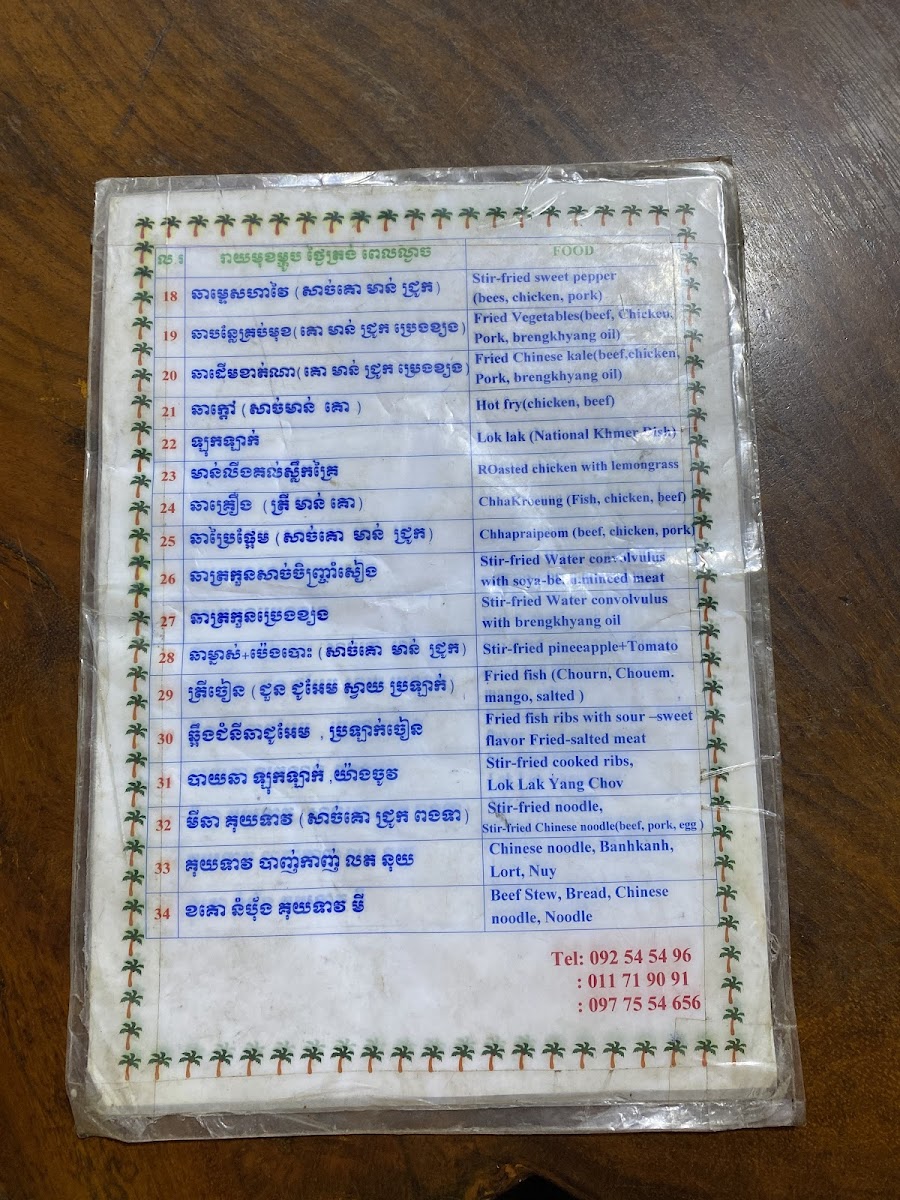 ល.រ រាយមុខម្ហូប ថ្ងៃត្រង់ ពេលល្ងាច FOOD
18 ឆាម្ទេសហាវៃ (សាច់គោ មាន់ ជ្រូក) Stir-fried sweet pepper
(bees, chicken, pork)
19 ឆាបន្លែគ្រប់មុខ(គោ មាន់ ជ្រូក ប្រេងខ្យង) Fried Vegetables(beef, Chicken,
Pork, brengkhyang oil)
20 ឆាដើមខាត់ណា(គោ មាន់ ជ្រូក ប្រេងខ្យង) Fried Chinese kale(beef,chicken,
Pork, brengkhyang oil)
21 ឆាក្តៅ (សាច់មាន់ គោ ) Hot fry(chicken, beef)
22 ឡុកឡាក់ Lok lak (National Khmer Dish)
23 មាន់លីងគល់ស្លឹកគ្រៃ ROasted chicken with lemongrass
24 ឆាគ្រឿង (ត្រី មាន់ គោ) ChhaKroeung (Fish, chicken, beef)
25 ឆាប្រៃផ្អែម (សាច់គោ មាន់ ជ្រូក) Chhapraipeom (beef, chicken, pork)
26 ឆាត្រកួនសាច់ចិញ្ច្រាំសៀង Stir-fried Water convolvulus
with soya-be minced meat
27 ឆាត្រកួនប្រេងខ្យង Stir-fried Water convolvulus
with brengkhyang oil
28 ឆាម្នាស់+ប៉េងប៉ោះ (សាច់គោ មាន់ ជ្រូក) Stir-fried pineeapple+Tomato
29 ត្រីចៀន (ជួន ជូអែម ស្វាយ ប្រឡាក់) Fried fish (Chourn, Chouem.
mango, salted )
30 ឆ្អឹងជំនីឆាជូអែម , ប្រឡាក់ចៀន Fried fish ribs with sour –sweet
flavor Fried-salted meat
31 បាយឆា ឡុកឡាក់ ,យ៉ាងចូវ Stir-fried cooked ribs,
Lok Lak Yang Chov
32 មីឆា គុយទាវ (សាច់គោ ជ្រូក ពងទា) Stir-fried noodle,
Stir-fried Chinese noodle(beef, pork, egg )
33 គុយទាវ បាញ់កាញ់ លត នុយ Chinese noodle, Banhkanh,
Lort, Nuy
34 ខគោ នំប៉័ង គុយទាវ មី Beef Stew, Bread, Chinese
noodle, Noodle
Tel: 092 54 54 96
: 011 71 90 91
: 097 75 54 656